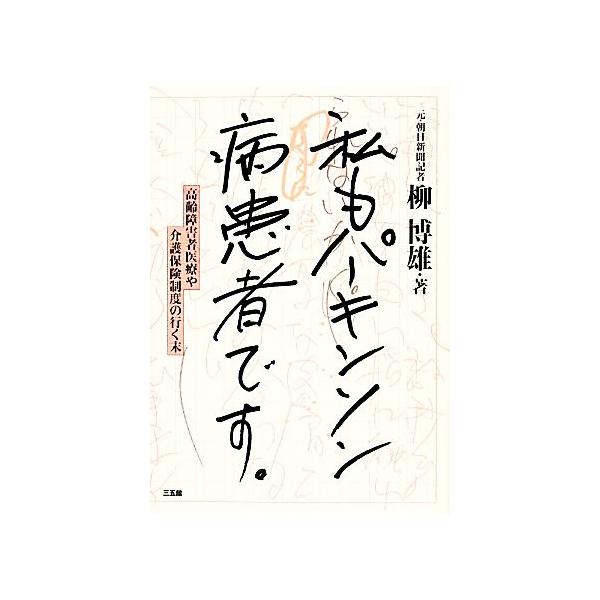 元朝日新聞記者
柳 博雄・著
私もパーキンソン
病患者です。
高齢障害者医療や
介護保険制度の行く末
三五館